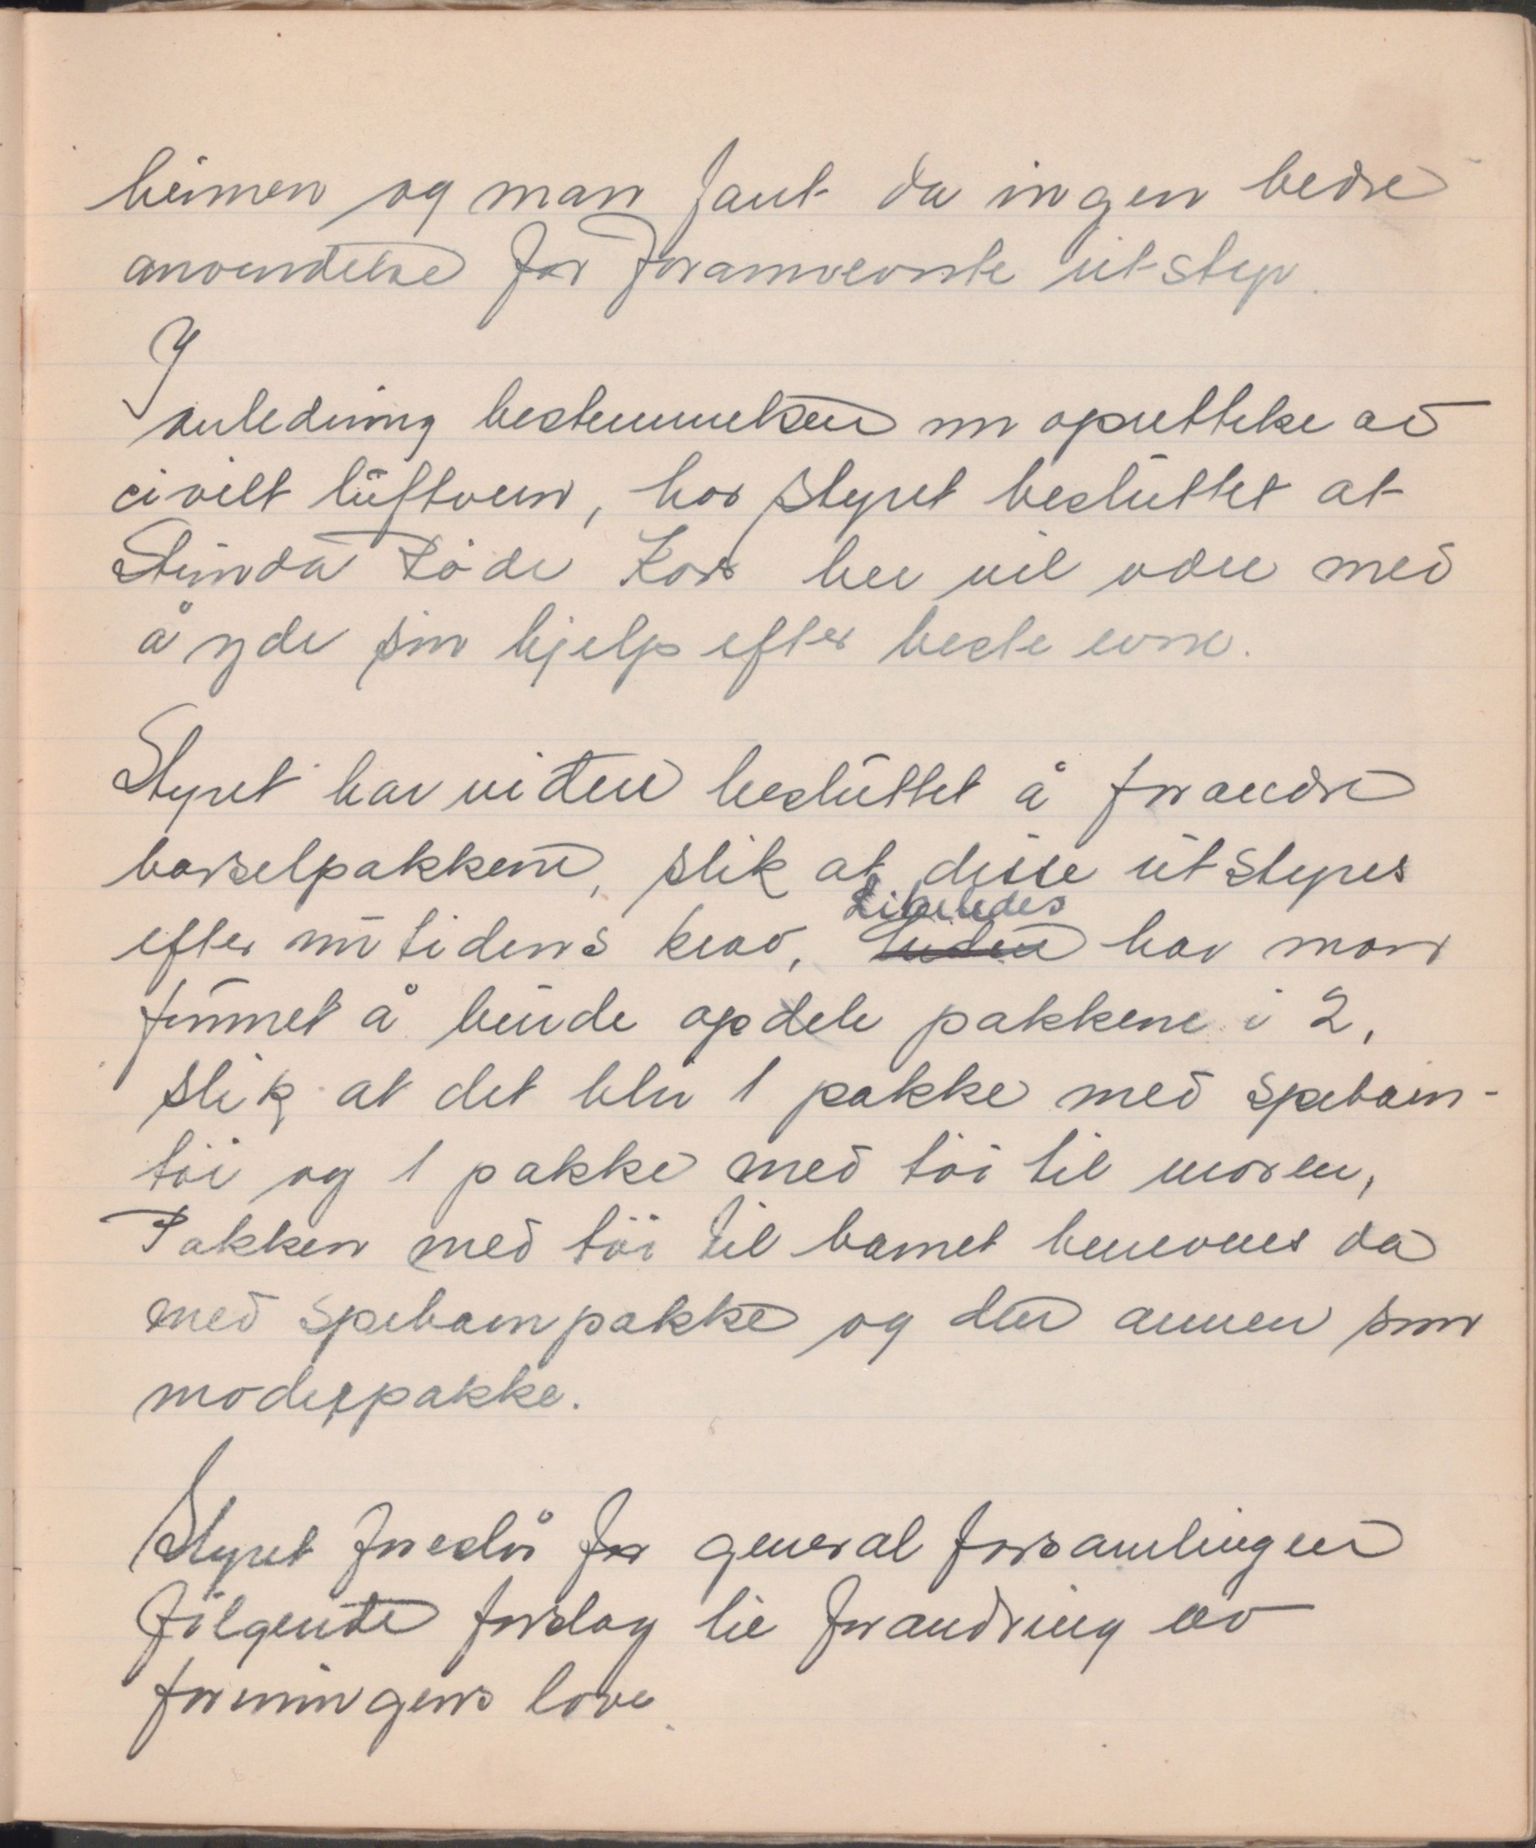 heimen og man fant da ingen bedre
anvendelse for forannevnte utstyr.
I
anledning bestemmelsen om oprettelse av
civilt luftvern, har styret besluttet at
Strinda Röde Kors her vil være med
å yde sin hjelp efter beste evne.
Styret har videre besluttet å forandre
barselpakkene, slik at disse utstyres
Likeledes
efter nutidens krav, har man
funnet å burde opdele pakkene i 2,
slik at det blir 1 pakke med spebarn-
töi og 1 pakke med töi til moren,
Pakken med töi til barnet benevnes da
med spebarnpakke og den annen som
moderpakke.
Styret foreslår for generalforsamlingen
fölgende forslag til forandring av
foreningens love.